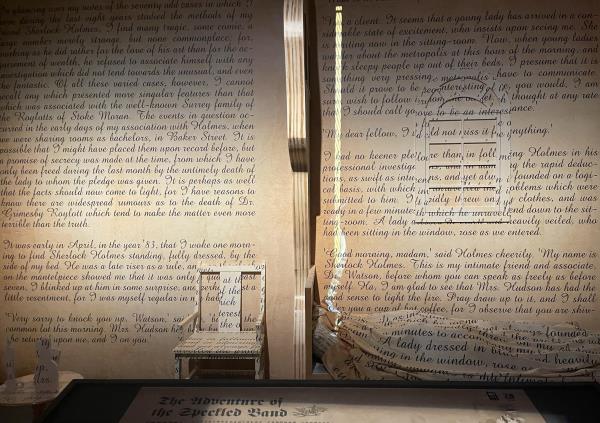 In glancing over my notes of the seventy odd cases in which I
have during the last eight years studied the methods of my
friend Sherlock Holmes, I find many tragic, some comic, a
large number merely strange, but none commonplace; for,
working as he did rather for the love of his art than for the ac-
quirement of wealth, he refused to associate himself with any
investigation which did not tend towards the unusual, and even
the fantastic. Of all these varied cases, however, I cannot
recall any which presented more singular features than that
which was associated with the well-known Surrey family of
the Roylotts of Stoke Moran. The events in question oc-
curred in the early days of my association with Holmes, when
we were sharing rooms as bachelors, in Baker Street. It is
possible that I might have placed them upon record before, but
a promise of secrecy was made at the time, from which I have
only been freed during the last month by the untimely death of
the lady to whom the pledge was given. It is perhaps as well
that the facts should now come to light, for I have reasons to
know there are widespread rumours as to the death of Dr.
Grimesby Roylott which tend to make the matter even more
terrible than the truth.
It was early in April, in the year '83, that I woke one morn-
ing to find Sherlock Holmes standing, fully dressed, by the
side of my bed. He was a late riser as a rule, and
on the mantelpiece showed me that it was only a quarter
seven, I blinked up at him in some surprise, and perhaps
little resentment, for I was myself regular in
'Very sorry to knock you up, Watson,' said
common lot this morning. Mrs. Hudson
she retorted upon me, and I on you.'
'No, a client. It seems that a young lady has arrived in a con-
siderable state of excitement, who insists upon seeing me. She
is waiting now in the sitting-room. Now, when young ladies
wander about the metropolis at this hour of the morning, and
knock sleepy people up out of their beds, I presume that it is
something very pressing which they have to communicate.
Should it prove to be an interesting case, you would, I am
sure, wish to follow it from the outset. I thought at any rate
that I should call you
'My dear fellow, I would not miss it for anything.'
I had no keener pleasure than in following Holmes in his
professional investigations, and in admiring the rapid deduc-
tions, as swift as intuitions, and yet always founded on a logi-
cal basis, with which he unravelled the problems which were
submitted to him. I rapidly threw on my clothes, and was
ready in a few minutes to accompany my friend down to the sit-
ting-room. A lady dressed in black and heavily veiled, who
had been sitting in the window, rose as we entered.
'Good morning, madam,' said Holmes cheerily. 'My name is
Sherlock Holmes. This is my intimate friend and associate,
Dr. Watson, before whom you can speak as freely as before
myself. Ha, I am glad to see that Mrs. Hudson has had the
good sense to light the fire. Pray draw up to it, and I shall
order you a cup of hot coffee, for I observe that you are shiv-
minutes to accompany
A lady dressed in
sitting in the window, rose
The Adventure of
the Speckled Band